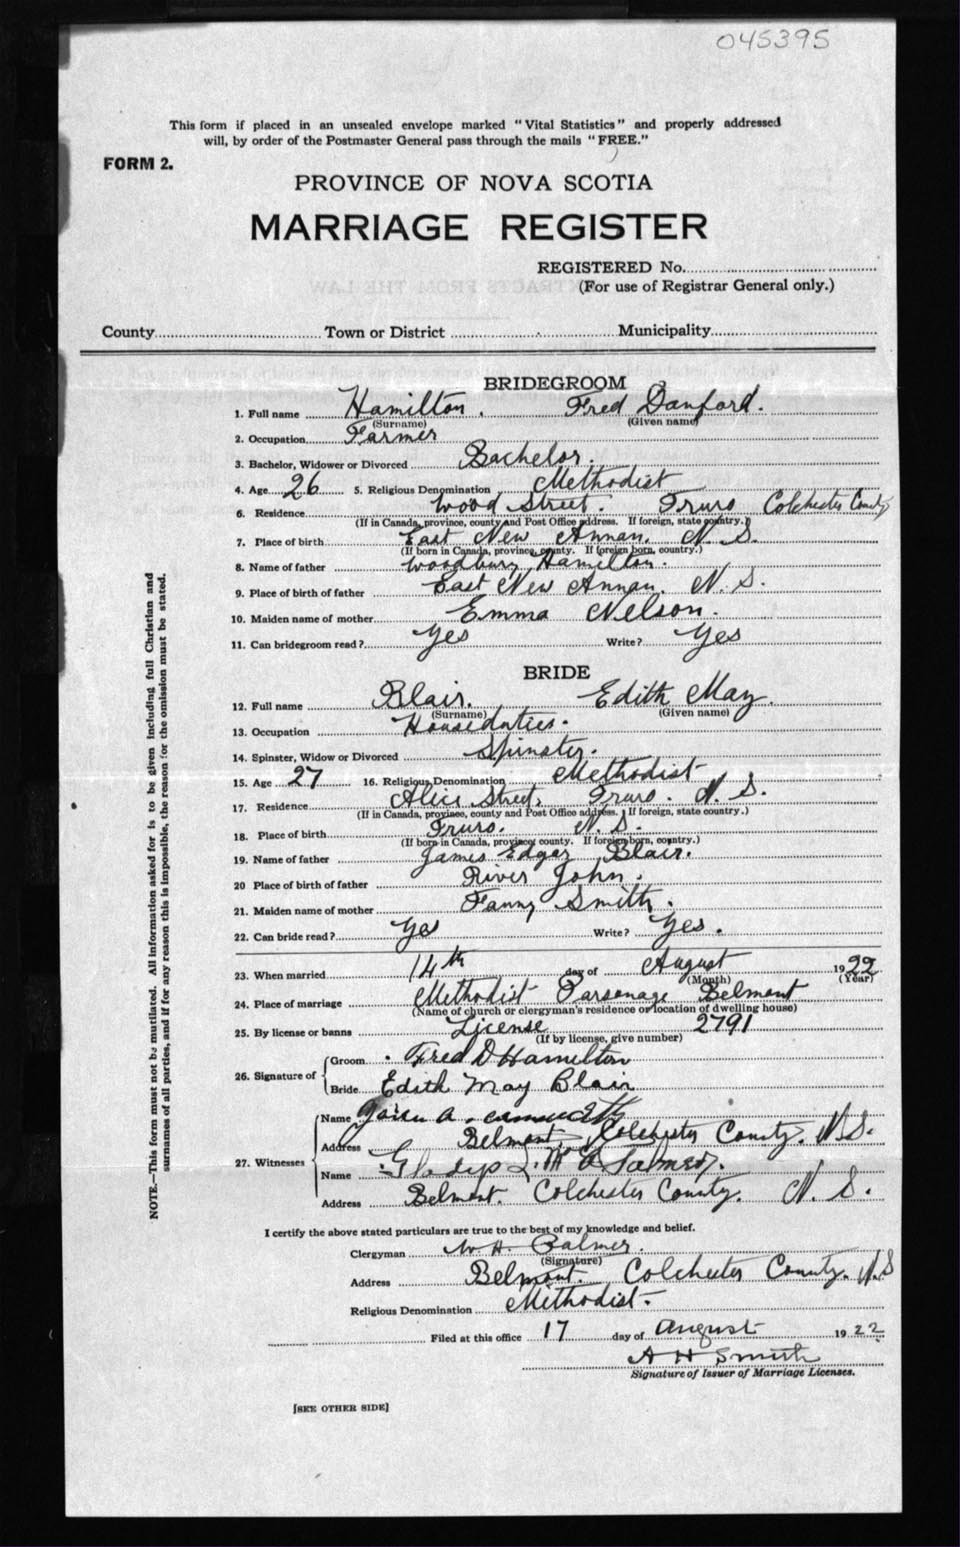 045395
This form if placed in an unsealed envelope marked "Vital Statistics" and properly addressed
will, by order of the Postmaster General pass through the mails "FREE."
FORM 2.
PROVINCE OF NOVA SCOTIA
MARRIAGE REGISTER
REGISTERED No.
(For use of Registrar General only.)
County Town or District Municipality
BRIDEGROOM
1. Full name Hamilton. Fred Danford.
(Surname) (Given name)
2. Occupation Farmer
3. Bachelor, Widower or Divorced Bachelor.
4. Age 26 5. Religious Denomination Methodist
6. Residence Wood Street. Truro Colchester County
(If in Canada, province, county and Post Office address. If foreign, state country.)
7. Place of birth East New Annan. N. S.
(If born in Canada, province, county. If foreign born, country.)
8. Name of father Woodbury Hamilton.
9. Place of birth of father East New Annan. N. S.
10. Maiden name of mother Emma Nelson.
11. Can bridegroom read? Yes Write? Yes
BRIDE
12. Full name Blair. Edith May.
(Surname) (Given name)
13. Occupation Houseduties.
14. Spinster, Widow or Divorced Spinster.
15. Age 27 16. Religious Denomination Methodist
17. Residence Alice Street, Truro. N. S.
(If in Canada, province, county and Post Office address. If foreign, state country.)
18. Place of birth Truro. N. S.
(If born in Canada, province, county. If foreign born, country.)
19. Name of father James Edgar Blair.
20 Place of birth of father River John.
21. Maiden name of mother Fanny Smith.
22. Can bride read? Yes Write? Yes.
23. When married 14th day of August 1922
(Month) (Year)
24. Place of marriage Methodist Parsonage Belmont
(Name of church or clergyman's residence or location of dwelling house)
25. By license or banns License 2791
(If by license, give number)
26. Signature of Groom Fred D Hamilton
Bride Edith May Blair
27. Witnesses
Name A.
Address Belmont, Colchester County. N.S.
Name Gladys
Address Belmont. Colchester County. N. S.
I certify the above stated particulars are true to the best of my knowledge and belief.
Clergyman W. H. Palmer.
(Signature)
Address Belmont. Colchester County. N.S
Religious Denomination Methodist.
Filed at this office 17 day of August 1922
A H Smith
Signature of Issuer of Marriage Licenses.
[SEE OTHER SIDE]
NOTE.—This form must not be mutilated. All information asked for is to be given including full Christian and
surnames of all parties, and if for any reason this is impossible, the reason for the omission must be stated.